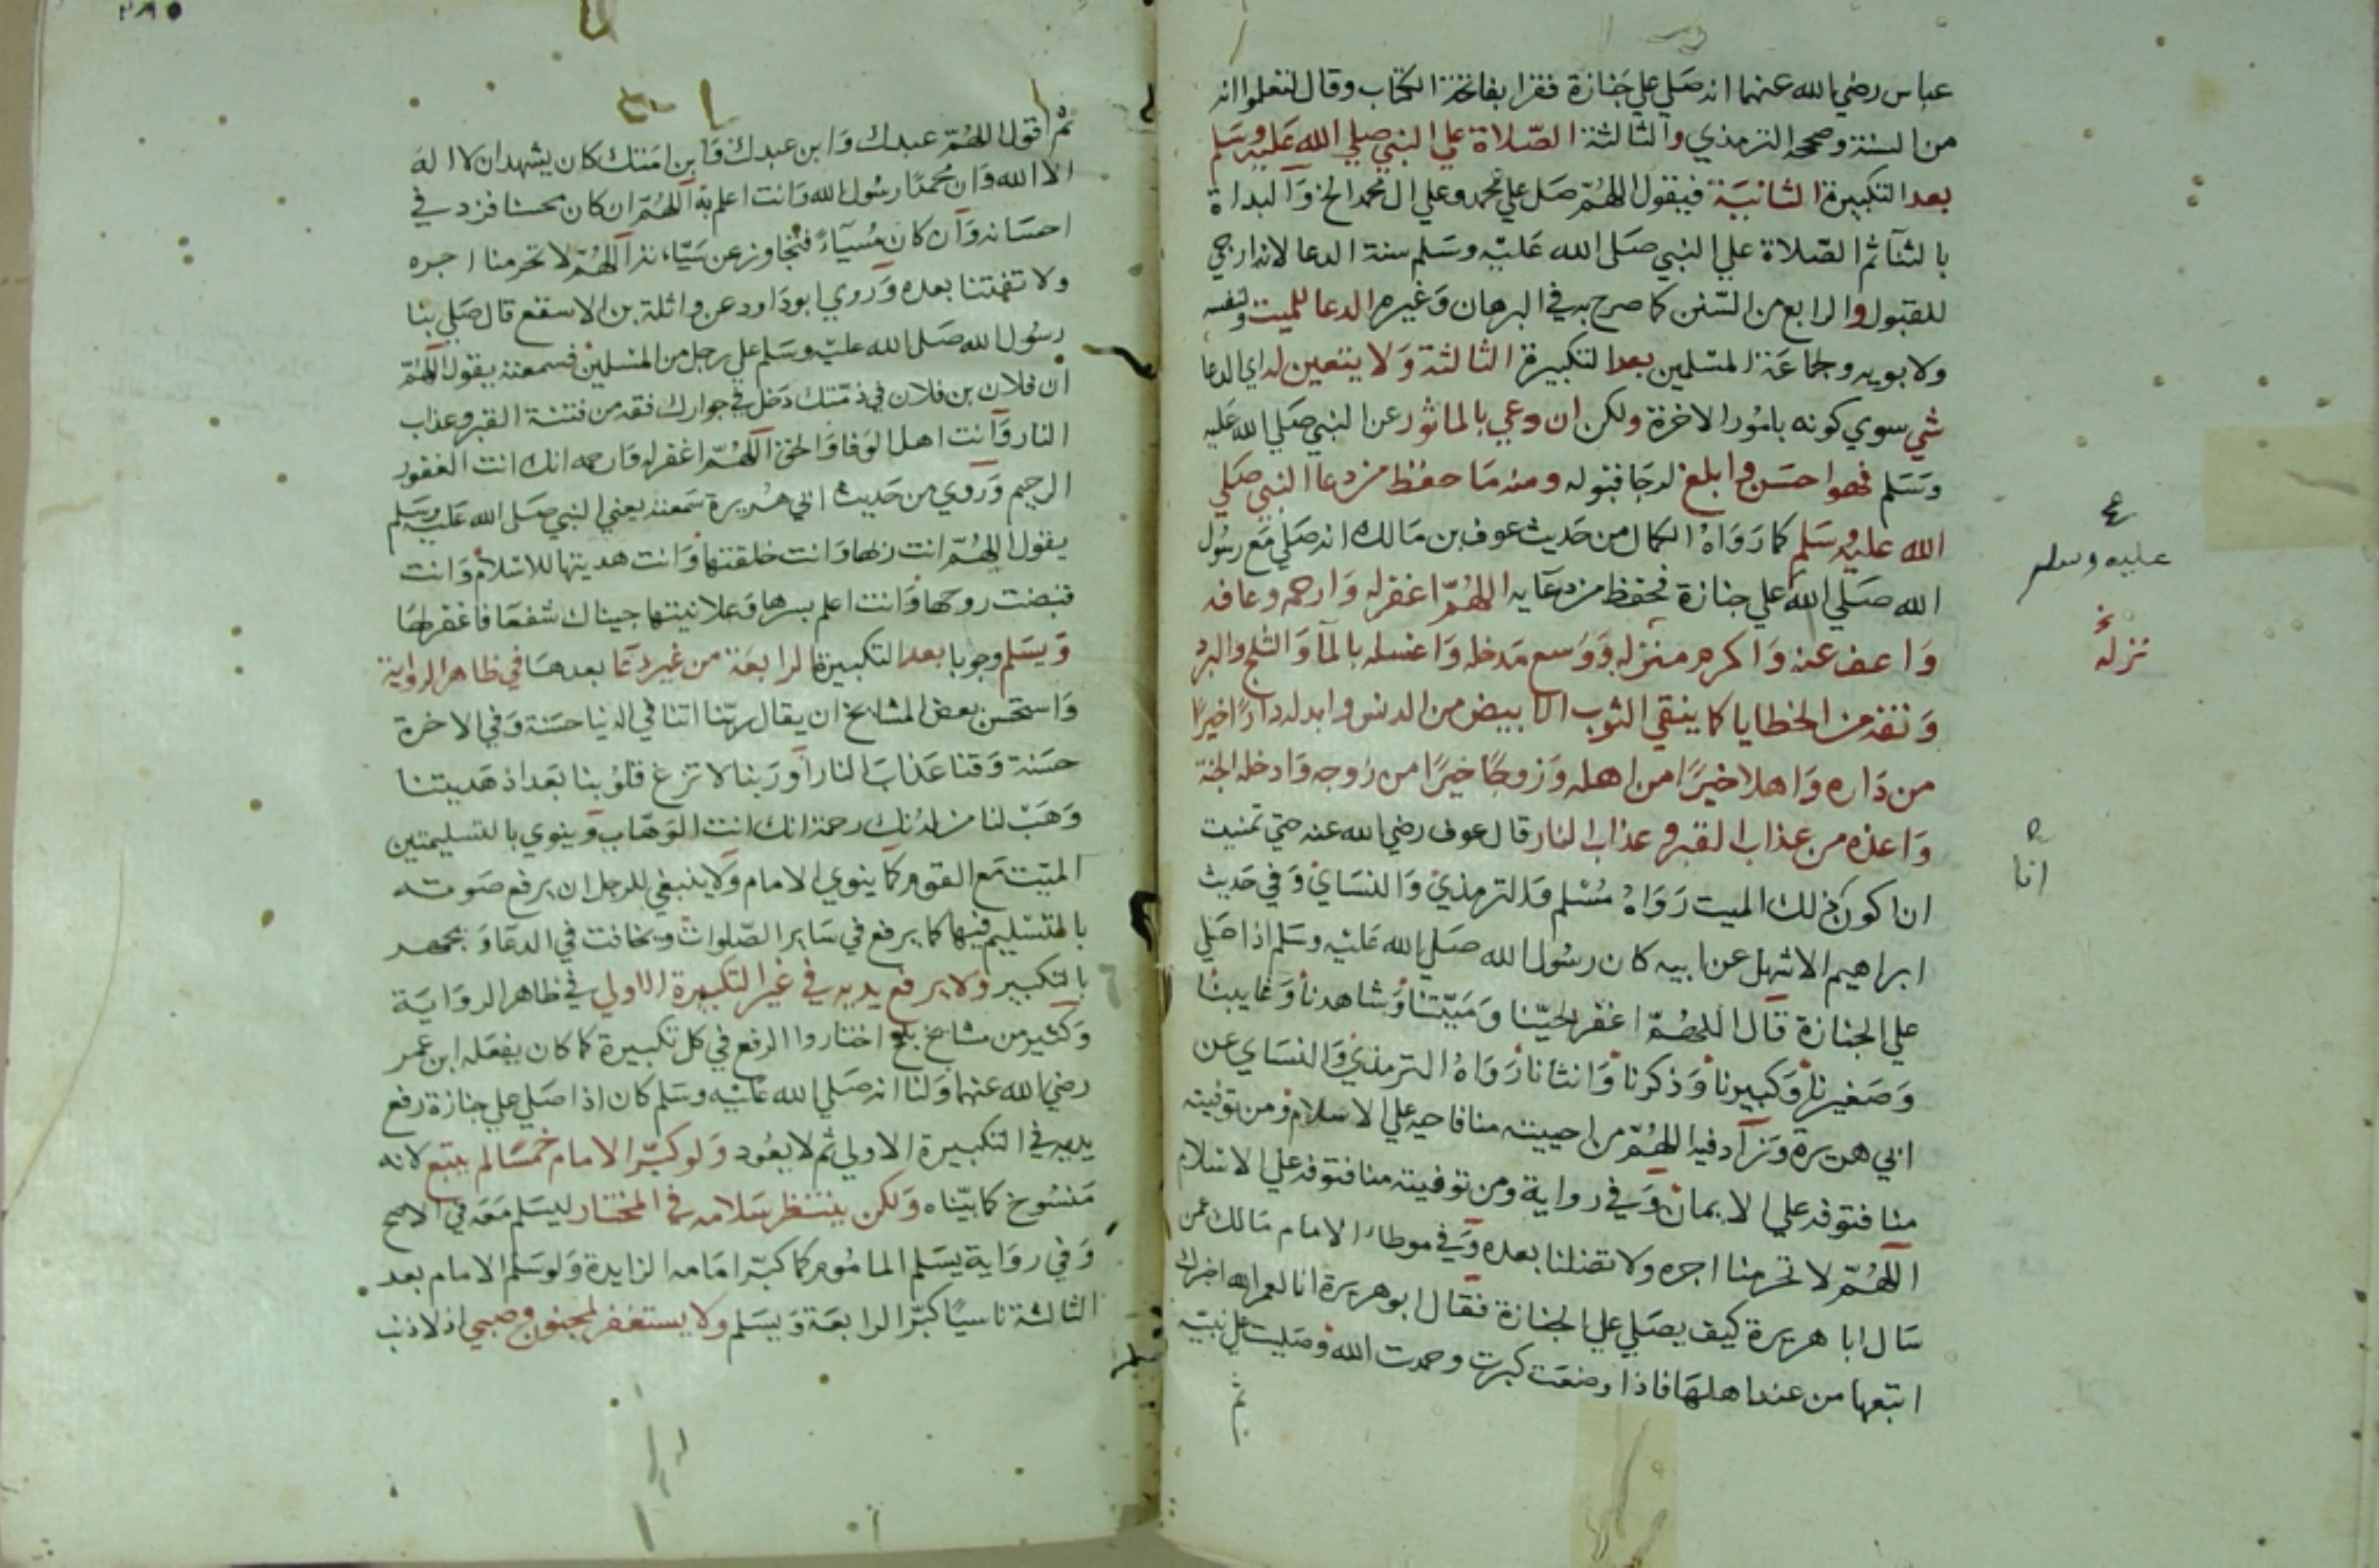 عباس رضي الله عنهما انه صلي علي جنازة فقرا بفاتحة الكتاب وقال لتعلموا انه
من السنة وصححه الترمذي والثالثة الصّلاة علي النبي صلي الله عَليه وسَلم
بعد التكبيرة الثانيَة فيقول اللهُمّ صَل علي محمد وعلي ال محمد الخ وَالبداة
بالثنآ ثم الصّلاة علي النبي صَلى الله عَليْه وسَلم سنة الدعا لانه ارجي
للقبول والرابع من السّنن كما صرح به في البرهان وَغيره الدعا للميت ولنفسه
ولابويه وجماعَة المسْلمين بعد التكبيرة الثالثة وَلا يتعين له اي الدعا
شي سوي كونه بامُور الاخرة ولكن ان دعي بالماثور عن النبي صَلي الله عَليه
وَسَلم فهو احسَن وابلغ لرجَا قبوله ومنه مَا حفظ من دعا النبي صَلي
الله عليه وسَلم كما رَوَاهُ الكمال من حَديث عوف بن مَالك انه صَلي مَع رسُول
الله صَلي الله علي جنازة فحفظ من دعَايه اللهُمّ اغفر له وَارحمه وعافه
وَاعف عنه وَاكرم منزله وَوَسع مَدخله وَاغسله بالمآ وَالثلج والبرد
وَنقه من الخطايا كما ينقي الثوب الابيض من الدنس وابدله دارًا خيرًا
من دَاره وَاهلا خيرًا من اهله وَزوجًا خيرًا من زوجه وَادخله الجنة
وَاعذه من عذاب القبر وعذاب النار قال عوف رضي الله عنه حتي تمنيت
ان اكون ذلك الميت رَوَاهُ مُسْلم وَالترمذي وَالنسَاي وَفي حَديث
ابراهيم الاشهل عن ابيه كان رسُول الله صَلي الله عَليْه وسَلم اذا صَلي
علي الجنازة قال اللهُمّ اغفر لحيّنا وَمَيّتنا وَشاهدنا وَغايبنا
وَصَغيرنا وَكبيرنا وَذكرنا وَانثانا رَوَاهُ الترمذي وَالنسَاي عن
ابي هريرة وَزاد فيه اللهُمّ من احييته منا فاحيه علي الاسلام ومن توفيته
منا فتوفه علي الايمان وَفي رواية ومن توفيته منا فتوفه علي الاسْلام
اللهُمّ لا تحرمنا اجره ولا تضلنا بعده وَفي موطاء الامام مَالك عمن
سَال ابا هريرة كيف يصَلي علي الجنازة فقال ابو هريرة انا لعمر الله اخبرك
اتبعها من عند اهلهَا فاذا وضعَت كبرت وحمدت الله وصَليت علي نبيّه
ثم
ع
عليه وسلم
نخ
نزله
انا
ثم اقول اللهُمّ عبدك وَابن عبدك وَابن امَتك كان يشهد ان لا اله
الا الله وَان مُحمدًا رسُول الله وَانت اعلم به اللهُمّ ان كان محسنا فزد في
احسَانه وَان كان مُسيآ فتجاوز عن سَيّاته اللهُمّ لا تحرمنا اجره
ولا تفتنا بعده وَروي ابو دَاود عن واثلة بن الاسقع قال صَلي بنا
رسُول الله صَلى الله عليْه وسَلم علي رجل من المسْلمين فسمعته يقول اللهُمّ
ان فلان بن فلان في ذمّتك دَخل في جوارك فقه من فتنة القبر وعذاب
النار وَانت اهل الوَفا وَالحق اللهُمّ اغفر له وَارحمه انك انت الغفور
الرحيم وَروي من حَديث ابي هُريرة سَمعته يعني النبي صَلى الله عَليْه وسَلم
يقول اللهُمّ انت ربها وَانت خلقتها وَانت هديتها للاسْلام وَانت
قبضت روحها وَانت اعلم بسرها وَعلانيتها جيناك شفعَا فاغفر لهَا
وَيسَلم وجوبا بعد التكبيرة الرابعَة من غير دعَا بعدهَا في ظاهر الرواية
وَاستحسن بعض المشايخ ان يقال ربّنا اتنا في الدنيا حسَنة وَفي الاخرة
حسَنة وَقنا عَذابَ النار اَو رَبنا لا تزغ قلوُبنا بَعد اذ هَديتنا
وَهَبْ لنا من لدُنك رحمة انك انت الوَهاب وَينوي بالتسليمتين
الميّت مَع القوم كما ينوي الامام وَلا ينبغي للرجل ان يرفع صَوته
بالتسْليم فيها كما يرفع في سَاير الصّلوات ويخافت في الدعَا وَيجهر
بالتكبير ولا يرفع يديه في غير التكبيرة الاولي في ظاهر الروَايَة
وَكثير من مشايخ بلخ اختاروا الرفع في كل تكبيرة كما كان يفعَله ابن عمر
رضي الله عنهما وَلنا انه صَلي الله عَليْه وسَلم كان اذا صَلي علي جنازة رفع
يديه في التكبيرة الاولي ثم لا يعُود وَلو كبّر الامام خمْسًا لم يتبع لانه
مَنسُوخ كما بيّناه وَلكن ينتظر سَلامه في المختار ليسَلم مَعَه في الاصح
وَفي روَاية يسَلم المامُوم كما كبّر امَامه الزايدة وَلو سَلم الامام بعد
الثالثة ناسيًا كبّر الرابعَة وَيسَلم ولا يستغفر لمجنون وصبي اذ لا ذنب